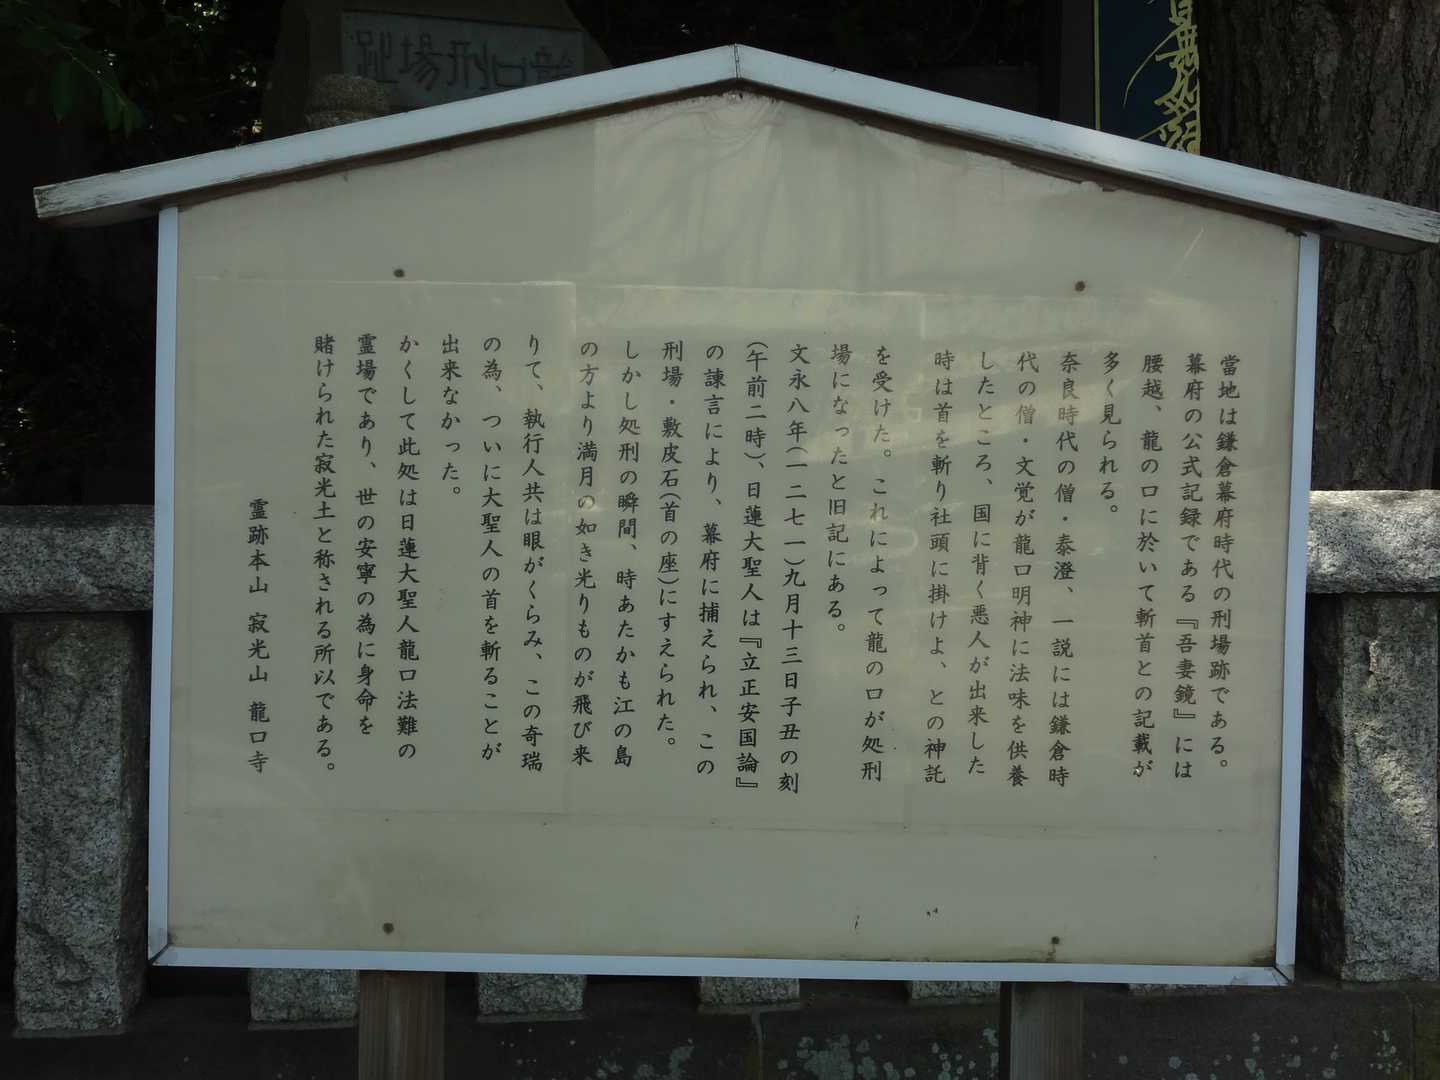 當地は鎌倉幕府時代の刑場跡である。
幕府の公式記録である『吾妻鏡』には
腰越、龍の口に於いて斬首との記載が
多く見られる。
奈良時代の僧・泰澄、一説には鎌倉時
代の僧・文覚が龍口明神に法味を供養
したところ、国に背く悪人が出来した
時は首を斬り社頭に掛けよ、との神託
を受けた。これによって龍の口が処刑
場になったと旧記にある。
文永八年(一二七一)九月十三日子丑の刻
(午前二時)、日蓮大聖人は『立正安国論』
の諌言により、幕府に捕えられ、この
刑場・敷皮石(首の座)にすえられた。
しかし処刑の瞬間、時あたかも江の島
の方より満月の如き光りものが飛び来
りて、執行人共は眼がくらみ、この奇瑞
の為、ついに大聖人の首を斬ることが
出来なかった。
かくして此処は日蓮大聖人龍口法難の
霊場であり、世の安寧の為に身命を
賭けられた寂光土と称される所以である。
霊跡本山 寂光山 龍口寺
龍口刑場趾